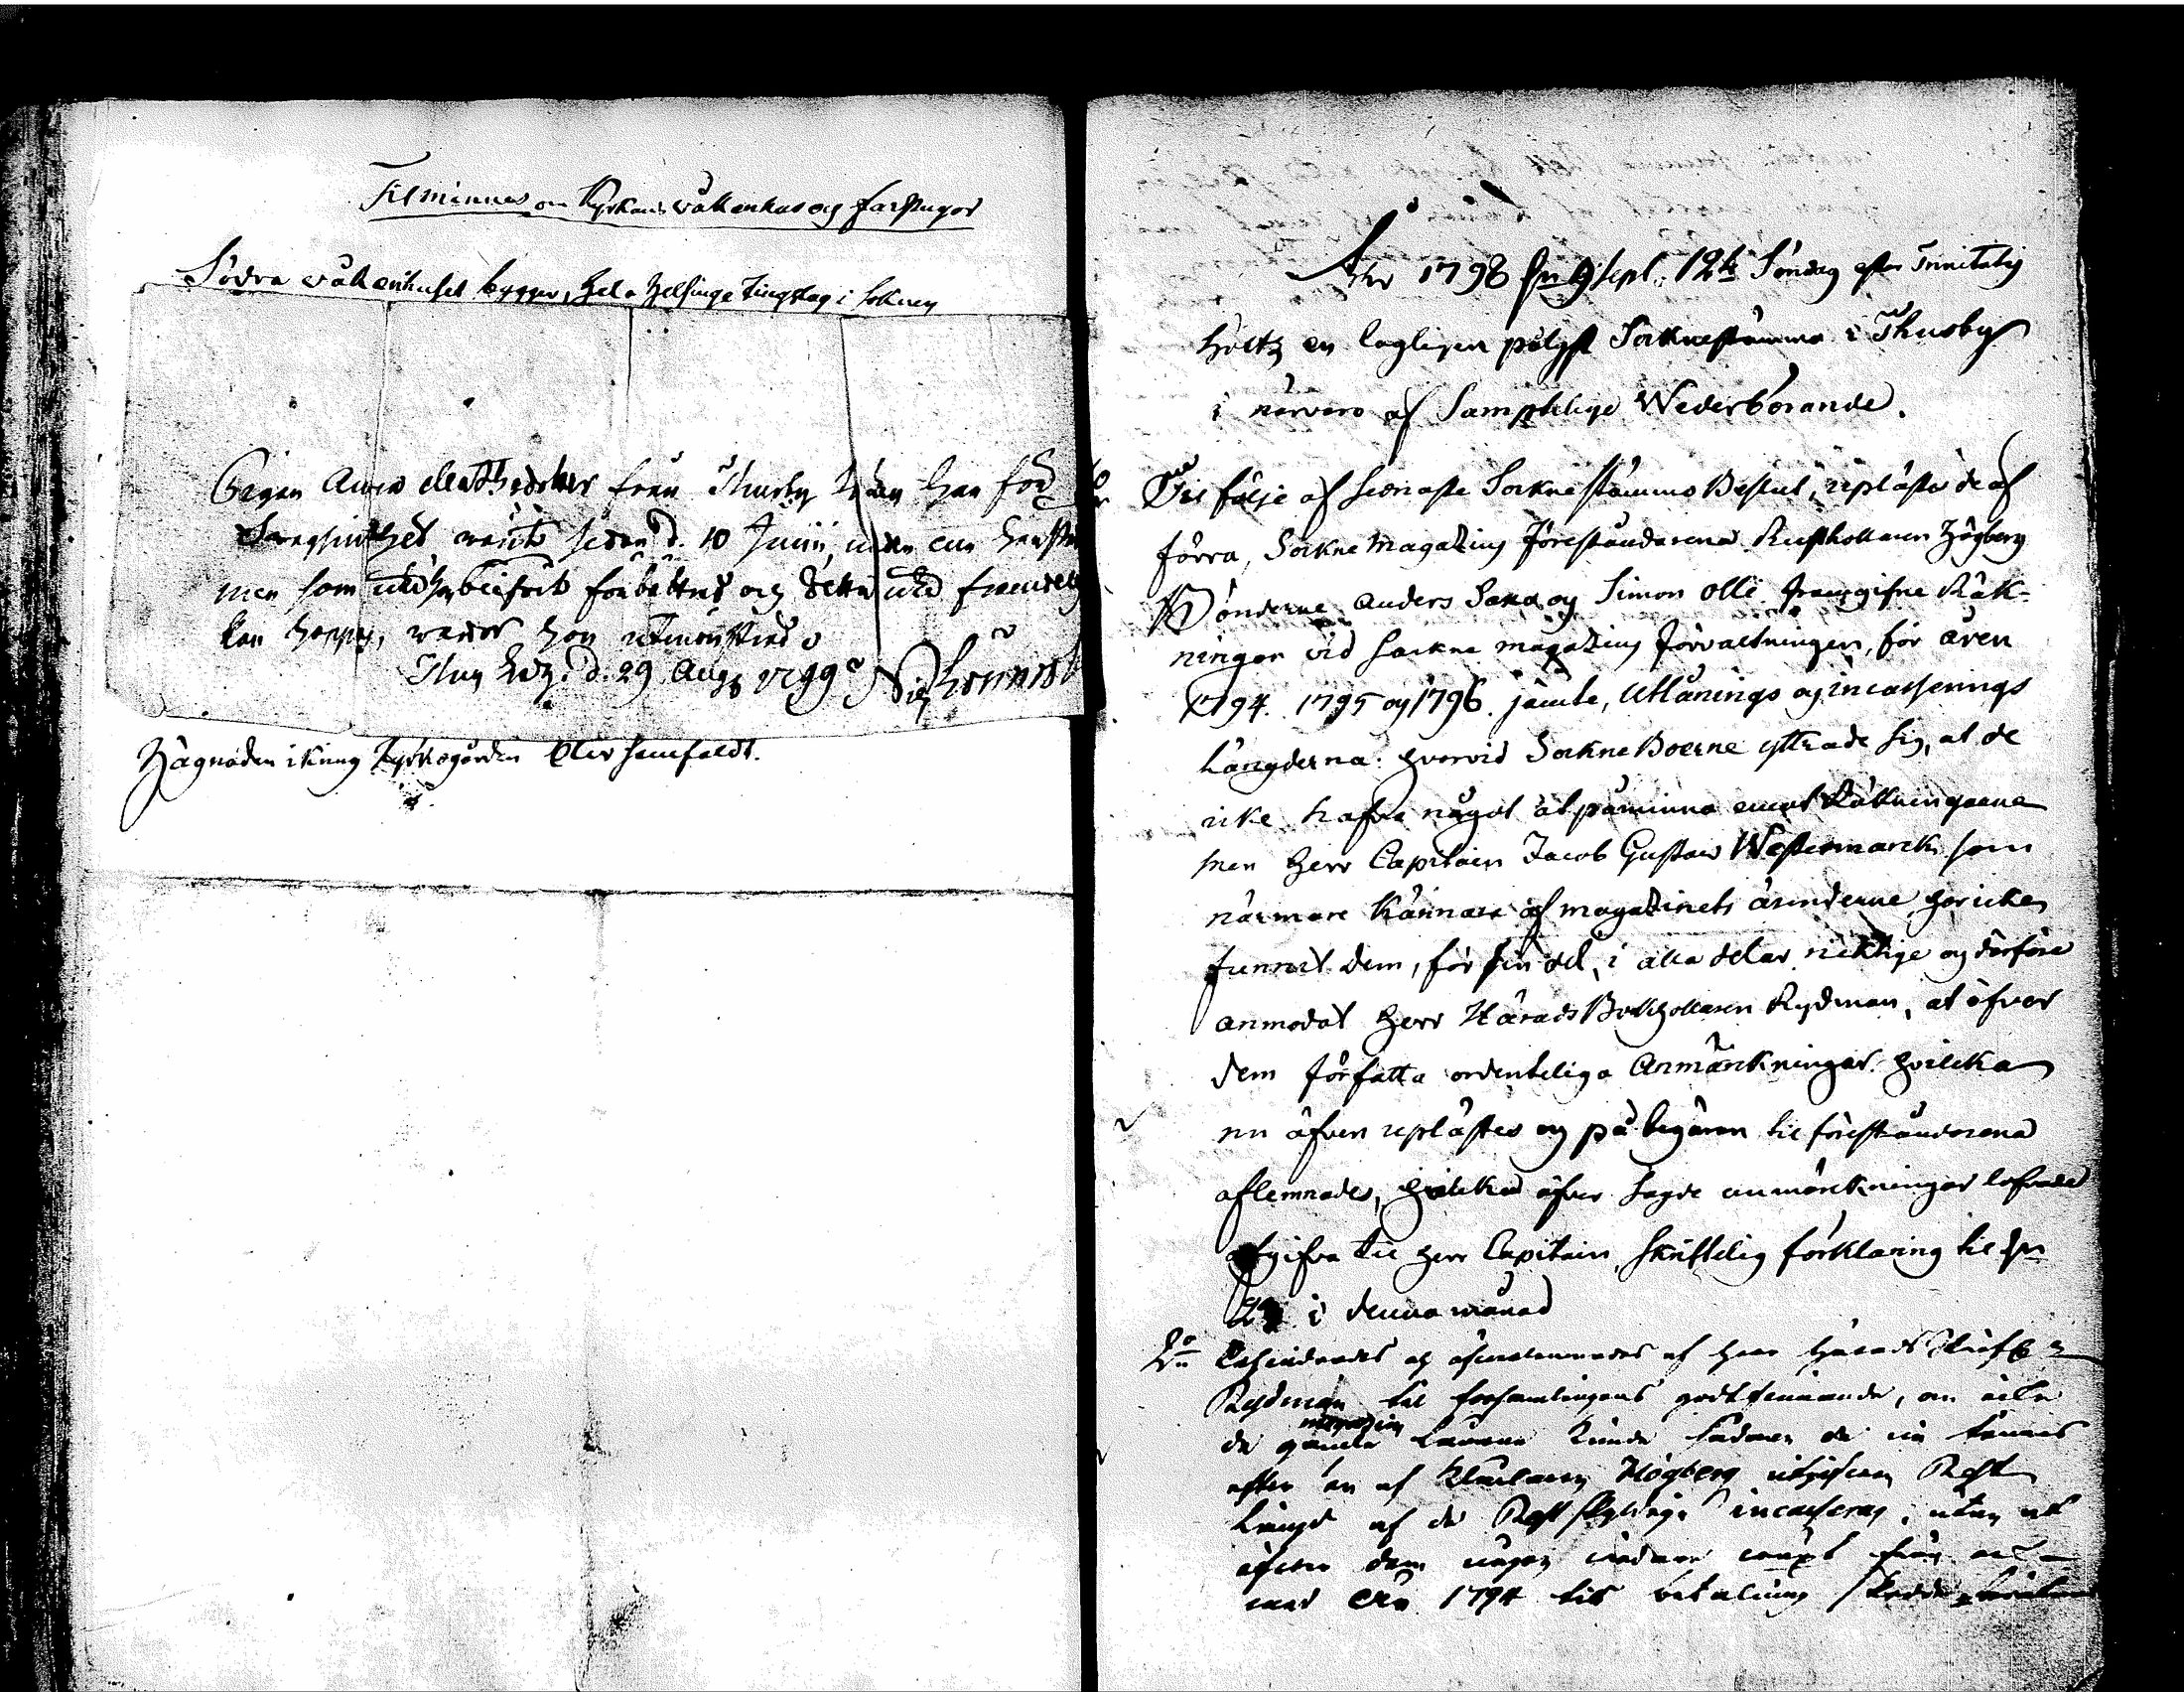 Til minnes om Kyrkans våkenhus og farstugor
Södra våkenhuset bygger, hela Helsinge Tingslag i Soknen
Pigan Anna Mattsdotter från Thusby har för
warit sedan d. 10 Junii,
men som förbättras og detta
kan hoppas, warder hon
Thusby d. 29 Aug. 1799
Hägnaden ikring Kyrkogården Eller samfäldt.
Åhr 1798 den 9 Sept. 12te Söndag efter Trinitatis
höltz en lagligen pålyst Socknestämma i Thusby
i närvaro af Samptelige Wederbörande.
Til följe af senaste Sockne stämmo Beslut, uplästes de af
förra, Sockne Magazins Föreståndarena Rusthollaren Högberg
Bönderne Anders Saka og Simon Olli framgifne Räk-
ningar vid Sockne magazins Förvaltningen, för åren
1794. 1795 og 1796. jämte, Utlånings og incasserings
Längderna. hvarvid SockneBoerne yttrade sig, at de
icke hafva något at påminna emot Räkningarne
men Herr Capitain Jacob Gustaw Westermarck som
närmare kännare af magazinets ärenderne har icke
funnit dem, för sin del, i alla delar riktige og därföre
anmodat Herr HäradsBokhollaren Rydman, at öfver
dem författa ordenteliga Anmärkningar hvilcka
nu äfven uplästes og på begäran til föreståndarena
aflemnades, hvilcka öfver sagde anmärkningar lofvade
afgifva til Herr Capitain, Skriftelig förklaring til den
i denna månad
2o af Herr Härads
Rydman til församlingens godtfinnande, om icke
de gamla magazin Lånen kunde
efter en af Klockaren Högberg utgifven Rest
Längd af de Restskyldige incasseras, utan at
öfver dem någon
med Åhr 1794 til betalning